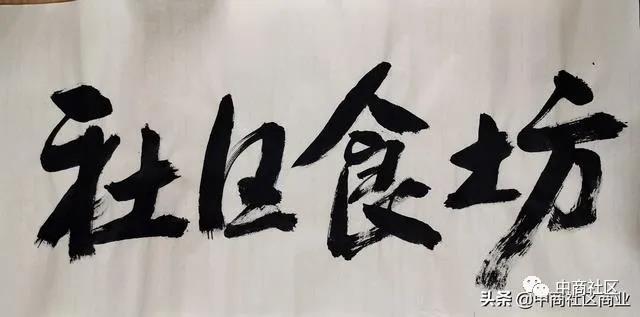 社区食坊
中商社区
头条 @中商社区商业